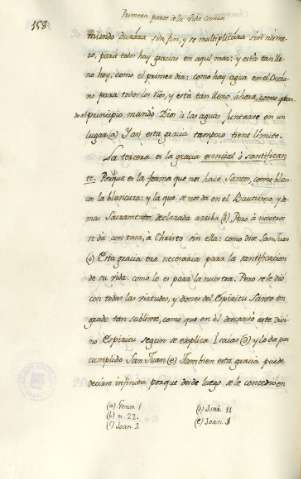 158
Primeros pasos de la vida
durando duraba sin fin, y se multiplicara sin numero,
para todo hay gracias en aquel mar: y está tan lleno
hoy, como el primer dia: como hay agua en el Oceano
para todos los rios, y está tan lleno ahora, como
al principio, mandó Dios a las aguas juntarse en un
lugar (a) Y an, esta gracia tampoco tiene límite.
La tercera es la gracia essencial ó santificante.
Porque es la forma que nos hace Santos, como blanco
la blancura: y la que se nos da en el Bautismo y demas
Sacramentos declarada arriba (b) Pero à nosotros
se da con tasa, à Christo sin ella: como dice San Juan
(c) Esta gracia era necessaria para la santificacion
de su vida: como lo es para la nuestra. Pero se le dió
con todas las virtudes, y dones del Espiritu Santo en
grado tan sublime, como que en él descansó este Divino
Espiritu segun se explica Isaias (d) y lo da por
cumplido San Juan (e) Tambien esta gracia puede
decirse infinita porque desde luego se le concedió en
(a) Genes. 1
(b) n. 22.
(c) Joan. 3
(d) Isai. 11
(e) Joan. 1